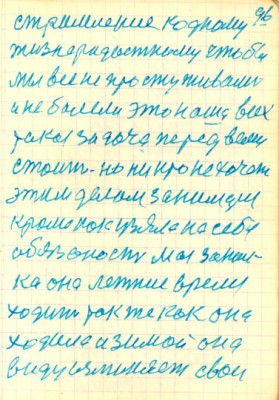 96
стремление кодному
жизнерадостному чтобы
мы все не простуживались
и не болели это наша всех
така задача перед всеми
стоит - но никто не хочет
этим делом заниматся
кроме как взяла на себя
обязоность моя запис-
ка она летние время
ходит так же как она
ходила и зимой она
виду изменяет свои